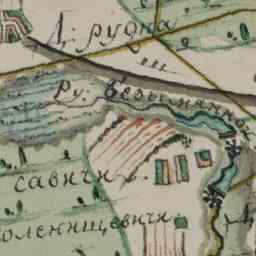 Д: рудна
Ру: безымянной
савичи
оленищевичи